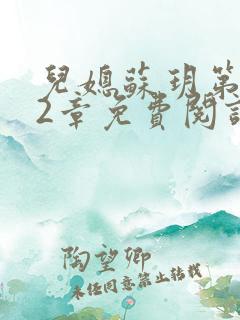 兒媳蘇玥第
2章免費閱讀
陶望卿
未经同意禁止转载